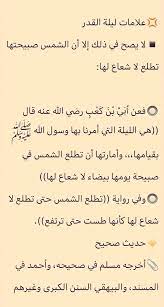 💥 علامات ليلة القدر
◾ لا يصح في ذلك إلا أن الشمس صبيحتها
تطلع لا شعاع لها:
🟡فعن أُبَيّ بْنَ كَعْبٍ رضي الله عنه قال
((هي الليلة التي أمرنا بها رسول الله ﷺ
بقيامها،،، وأمارتها أن تطلع الشمس في
صبيحة يومها بيضاء لا شعاع لها))
🟡وفي رواية ((تطلع الشمس حتى تطلع لا
شعاع لها كأنها طست حتى ترتفع)).
🔸 حديث صحيح
📎أخرجه مسلم في صحيحه، وأحمد في
المسند، والبيهقي السنن الكبرى وغيرهم